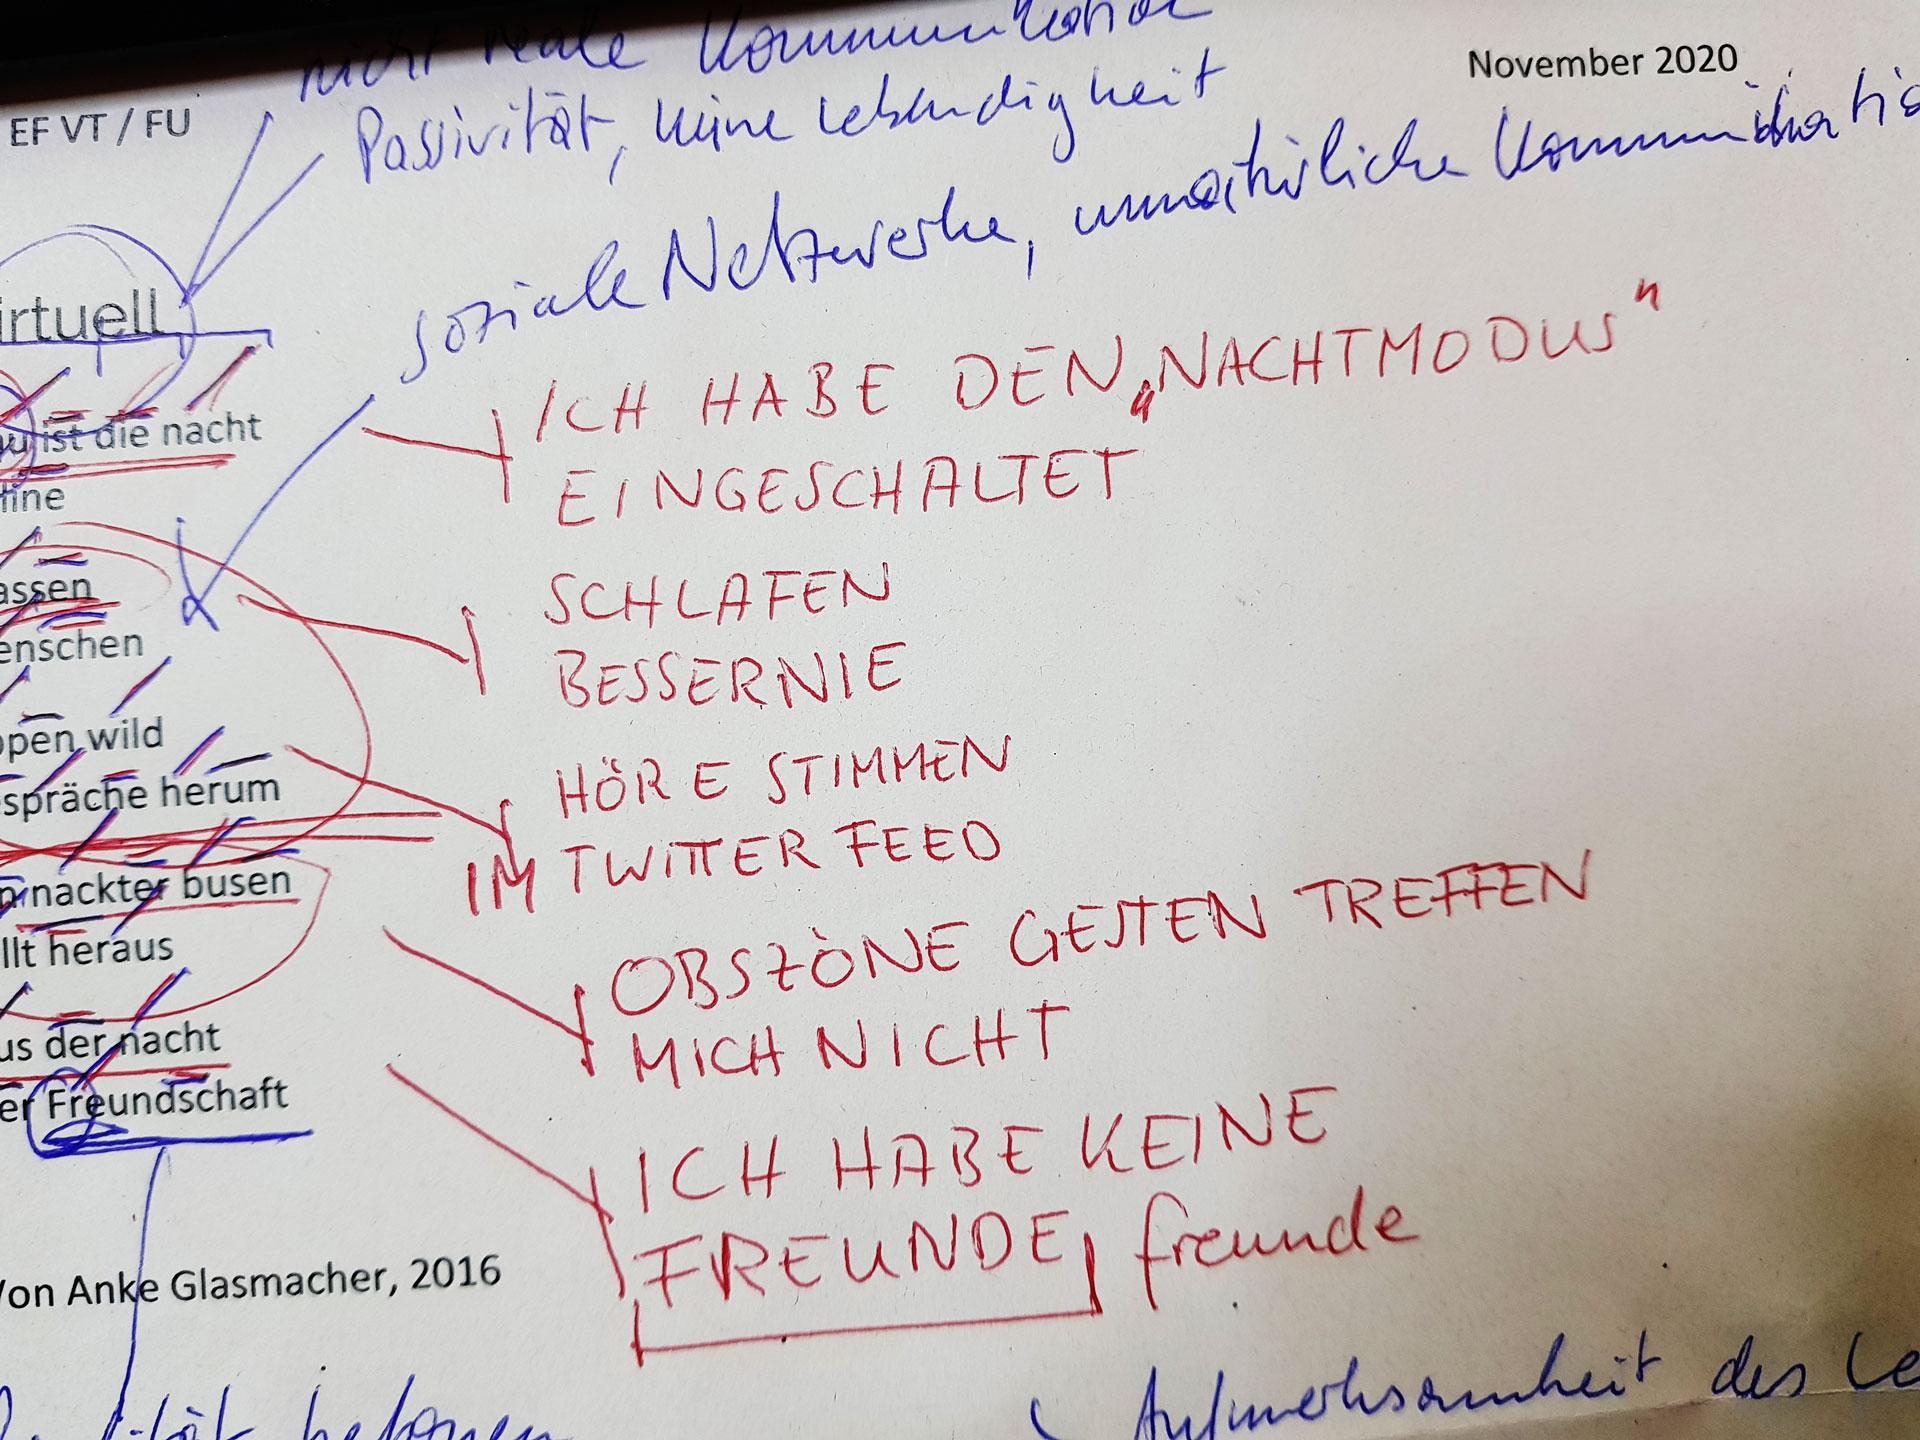 nicht reale Kommunikation
November 2020
EF VT / FU
Passivität, keine Lebendigkeit
soziale Netzwerke, unnatürliche Kommunikatio
irtuell
ICH HABE DEN „NACHTMODUS"
EINGESCHALTET
u ist die nacht
line
SCHLAFEN
BESSERNIE
assen
enschen
HÖRE STIMMEN
IM TWITTER FEED
ppen wild
spräche herum
OBSZÖNE GESTEN TREFFEN
MICH NICHT
n nackter busen
llt heraus
ICH HABE KEINE
FREUNDE, freunde
us der nacht
er Freundschaft
Von Anke Glasmacher, 2016
ität betonen
Aufmerksamkeit des Le